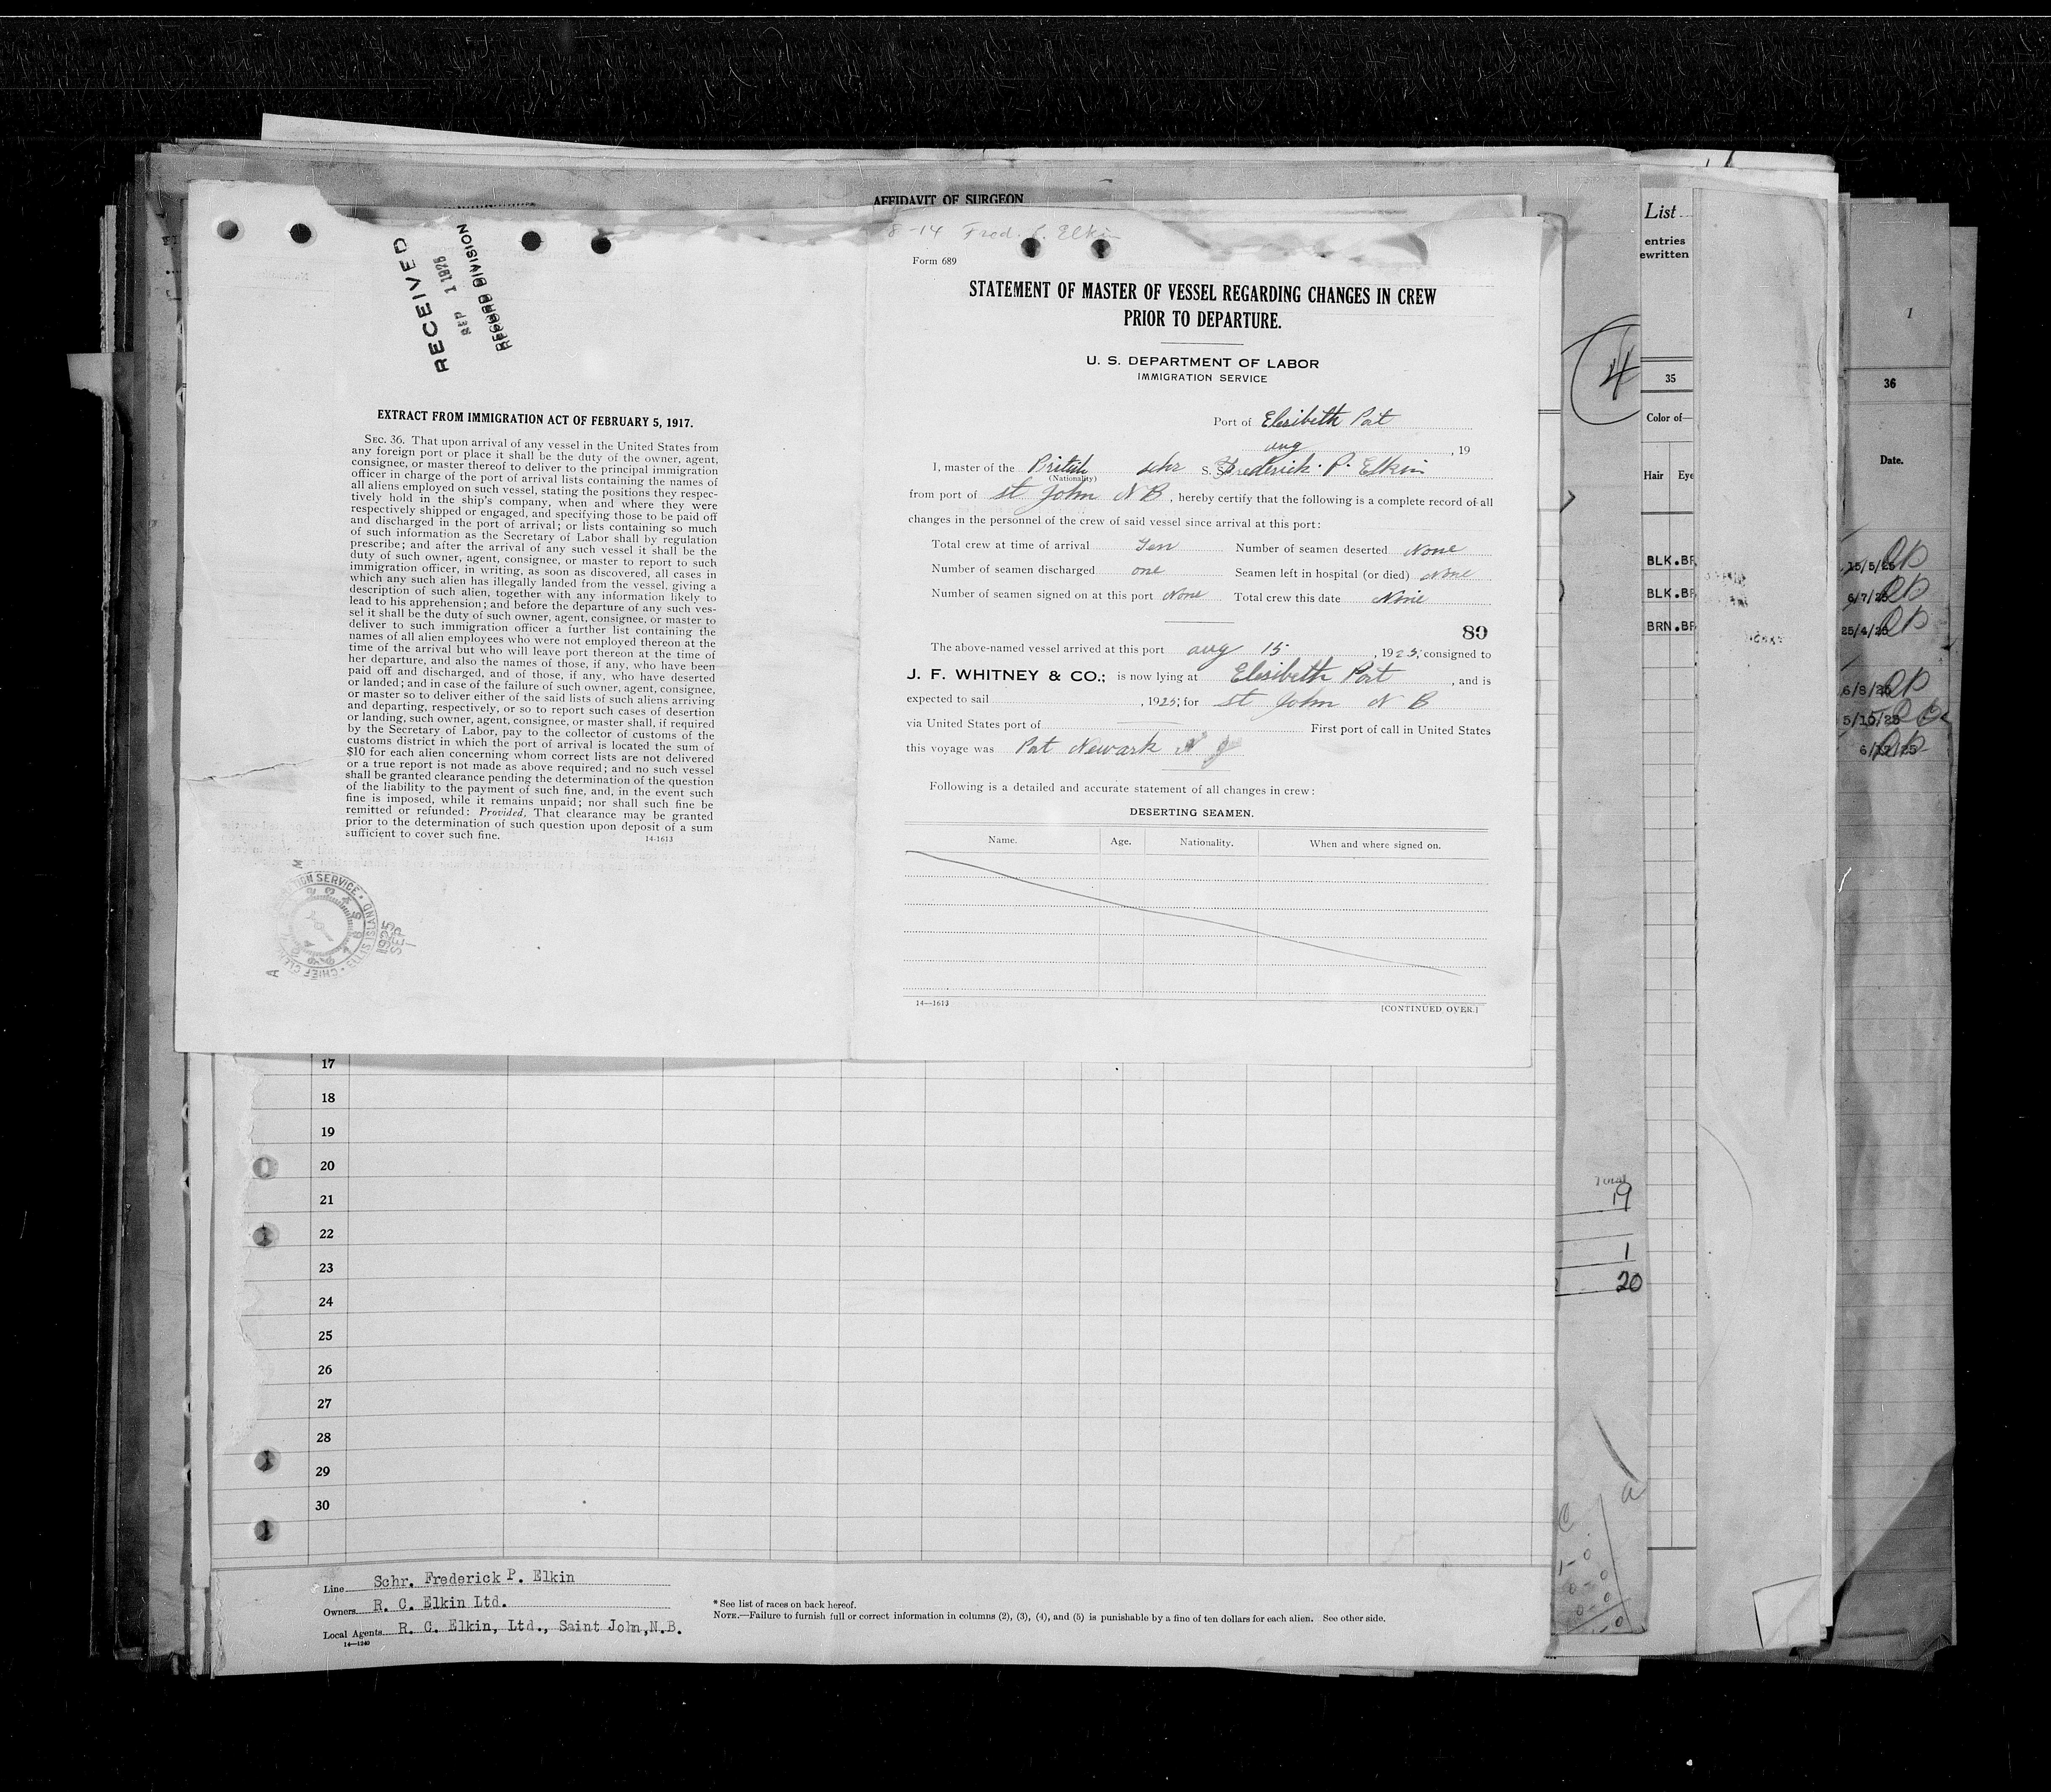 AFFIDAVIT OF SURGEON
RECEIVED
SEP 1 1925
RECORD DIVISION
EXTRACT FROM IMMIGRATION ACT OF FEBRUARY 5, 1917.
SEC. 36. That upon arrival of any vessel in the United States from
any foreign port or place it shall be the duty of the owner, agent,
consignee, or master thereof to deliver to the principal immigration
officer in charge of the port of arrival lists containing the names of
all aliens employed on such vessel, stating the positions they respec-
tively hold in the ship's company, when and where they were
respectively shipped or engaged, and specifying those to be paid off
and discharged in the port of arrival; or lists containing so much
of such information as the Secretary of Labor shall by regulation
prescribe; and after the arrival of any such vessel it shall be the
duty of such owner, agent, consignee, or master to report to such
immigration officer, in writing, as soon as discovered, all cases in
which any such alien has illegally landed from the vessel, giving a
description of such alien, together with any information likely to
lead to his apprehension; and before the departure of any such ves-
sel it shall be the duty of such owner, agent, consignee, or master to
deliver to such immigration officer a further list containing the
names of all alien employees who were not employed thereon at the
time of the arrival but who will leave port thereon at the time of
her departure, and also the names of those, if any, who have been
paid off and discharged, and of those, if any, who have deserted
or landed; and in case of the failure of such owner, agent, consignee,
or master so to deliver either of the said lists of such aliens arriving
and departing, respectively, or so to report such cases of desertion
or landing, such owner, agent, consignee, or master shall, if required
by the Secretary of Labor, pay to the collector of customs of the
customs district in which the port of arrival is located the sum of
$10 for each alien concerning whom correct lists are not delivered
or a true report is not made as above required; and no such vessel
shall be granted clearance pending the determination of the question
of the liability to the payment of such fine, and, in the event such
fine is imposed, while it remains unpaid; nor shall such fine be
remitted or refunded: Provided, That clearance may be granted
prior to the determination of such question upon deposit of a sum
sufficient to cover such fine.
14-1613
CHIEF CLERK
ELLIS ISLAND
1925
SEP
1
8-14 Fred. P. Elkin
Form 689
STATEMENT OF MASTER OF VESSEL REGARDING CHANGES IN CREW
PRIOR TO DEPARTURE.
U. S. DEPARTMENT OF LABOR
IMMIGRATION SERVICE
Port of Elesibeth Port
aug , 19
I, master of the British schr S. S. Frederick. P. Elkin
(Nationality)
from port of st John N B, hereby certify that the following is a complete record of all
changes in the personnel of the crew of said vessel since arrival at this port:
Total crew at time of arrival Ten Number of seamen deserted None
Number of seamen discharged one Seamen left in hospital (or died) None
Number of seamen signed on at this port None Total crew this date Nine
89
The above-named vessel arrived at this port aug 15 , 1925, consigned to
J. F. WHITNEY & CO.; is now lying at Elesibeth Port , and is
expected to sail , 1925, for st John N B
via United States port of First port of call in United States
this voyage was Port Newark N J
Following is a detailed and accurate statement of all changes in crew:
DESERTING SEAMEN.
Name. Age. Nationality. When and where signed on.
14—1613 [CONTINUED OVER.]
17
18
19
20
21
22
23
24
25
26
27
28
29
30
Line Schr. Frederick P. Elkin
Owners R. C. Elkin Ltd.
Local Agents R. C. Elkin, Ltd., Saint John, N.B.
14—1240
* See list of races on back hereof.
NOTE.—Failure to furnish full or correct information in columns (2), (3), (4), and (5) is punishable by a fine of ten dollars for each alien. See other side.
4
Total
19
1
20
List
entries
ewritten
35
Color of—
Hair Eye
BLK. BR
BLK. BR
BRN. BR
1
36
Date.
15/5/25
6/7/25
25/4/25
6/8/25
5/15/25
6/12/25